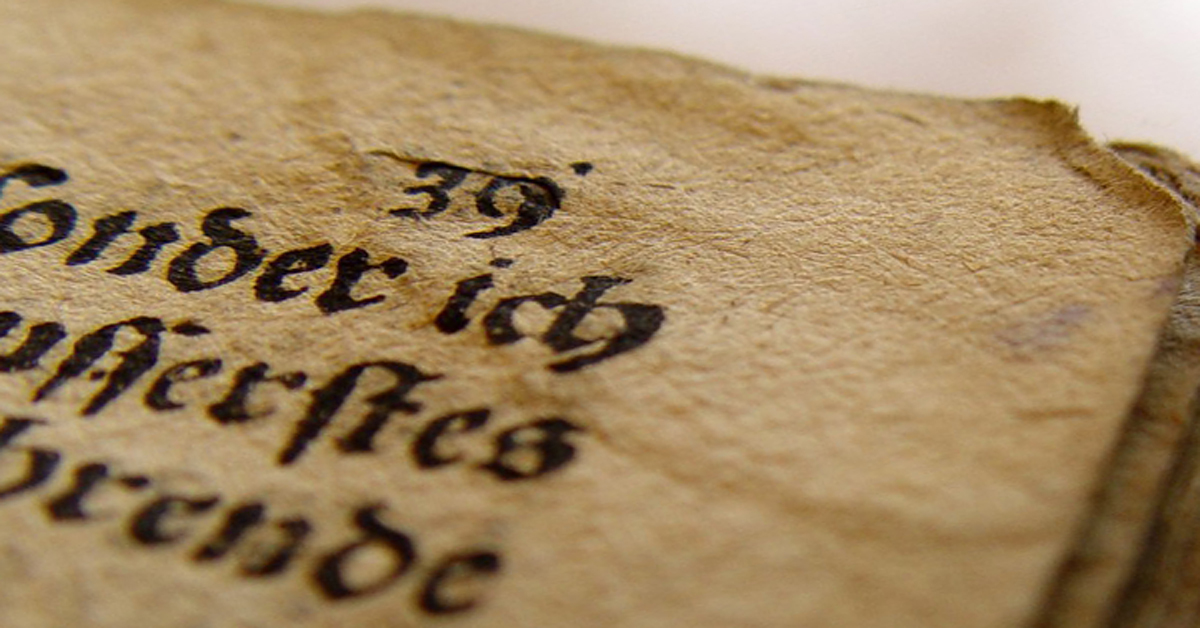 39
sonder ich
ufſerſtes
rende